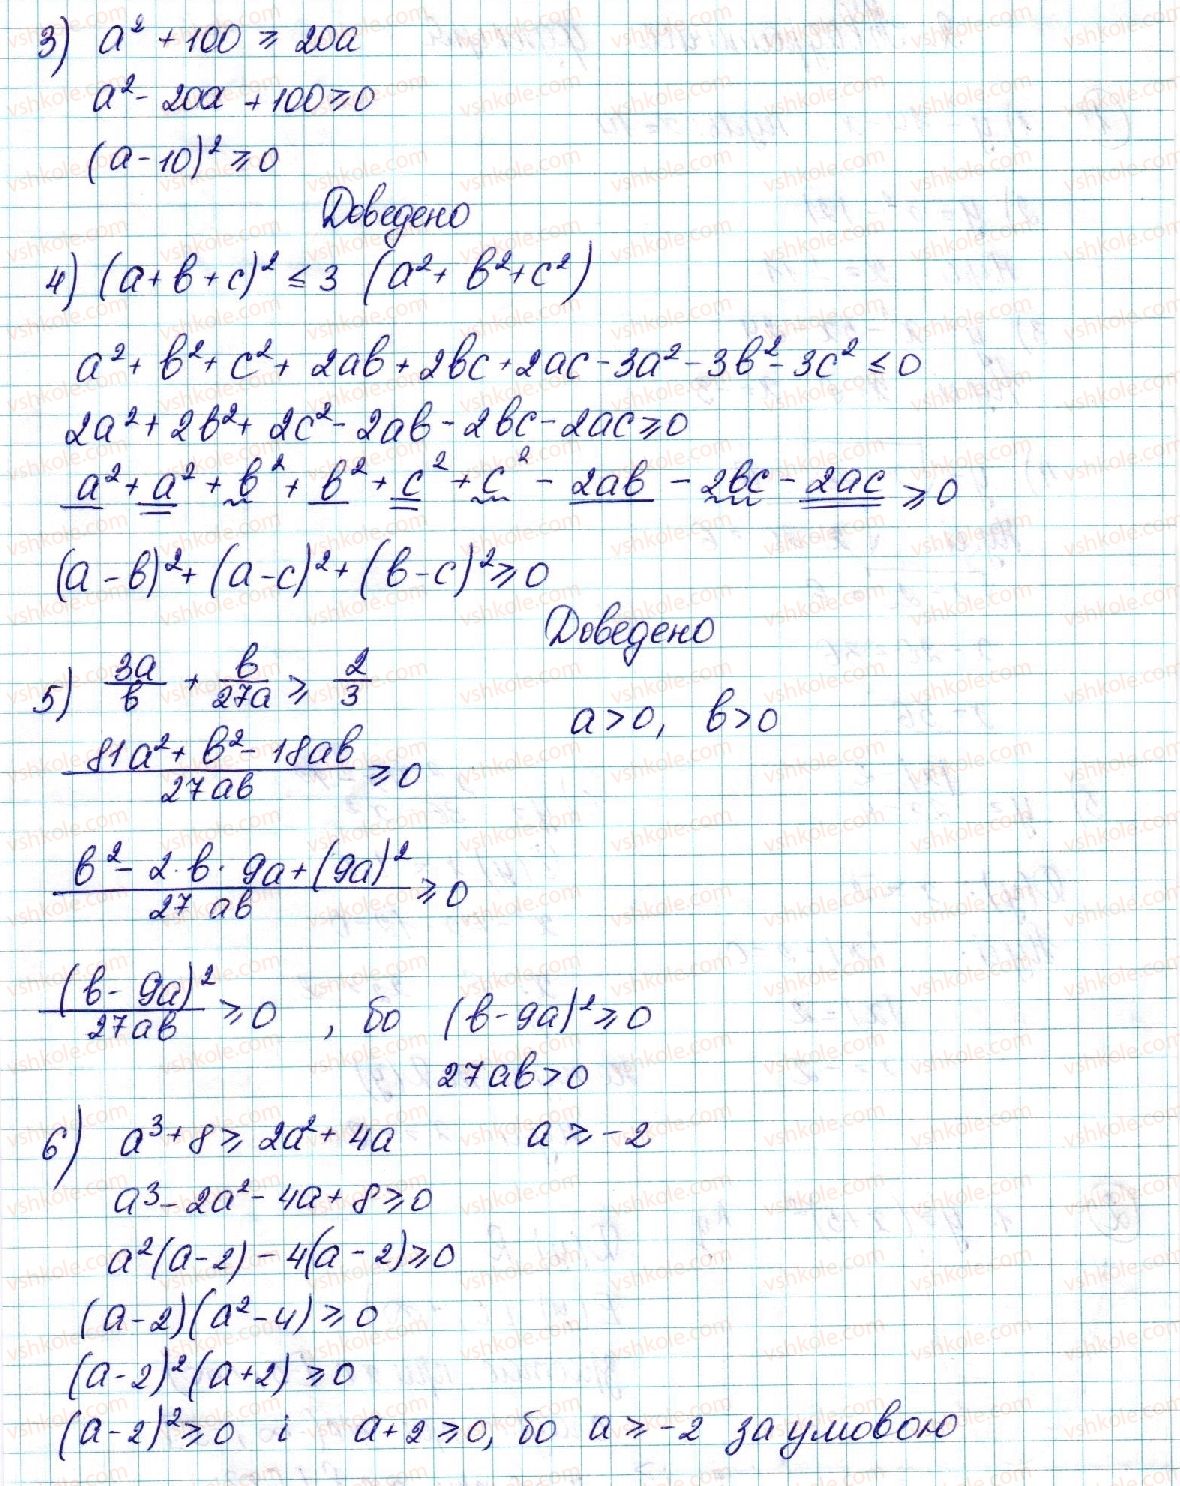 3) a² + 100 ≥ 20a
a² - 20a + 100 ≥ 0
(a - 10)² ≥ 0
Доведено
4) (a + b + c)² ≤ 3 (a² + b² + c²)
a² + b² + c² + 2ab + 2bc + 2ac - 3a² - 3b² - 3c² ≤ 0
2a² + 2b² + 2c² - 2ab - 2bc - 2ac ≥ 0
a² + a² + b² + b² + c² + c² - 2ab - 2bc - 2ac ≥ 0
(a - b)² + (a - c)² + (b - c)² ≥ 0
Доведено
5) 3a/b + b/27a ≥ 2/3
a > 0, b > 0
81a² + b² - 18ab / 27ab ≥ 0
b² - 2·b·9a + (9a)² / 27ab ≥ 0
(b - 9a)² / 27ab ≥ 0, бо (b - 9a)² ≥ 0
27ab > 0
6) a³ + 8 ≥ 2a² + 4a a ≥ -2
a³ - 2a² - 4a + 8 ≥ 0
a²(a - 2) - 4(a - 2) ≥ 0
(a - 2)(a² - 4) ≥ 0
(a - 2)²(a + 2) ≥ 0
(a - 2)² ≥ 0 і a + 2 ≥ 0, бо a ≥ -2 за умовою
vshkole.com